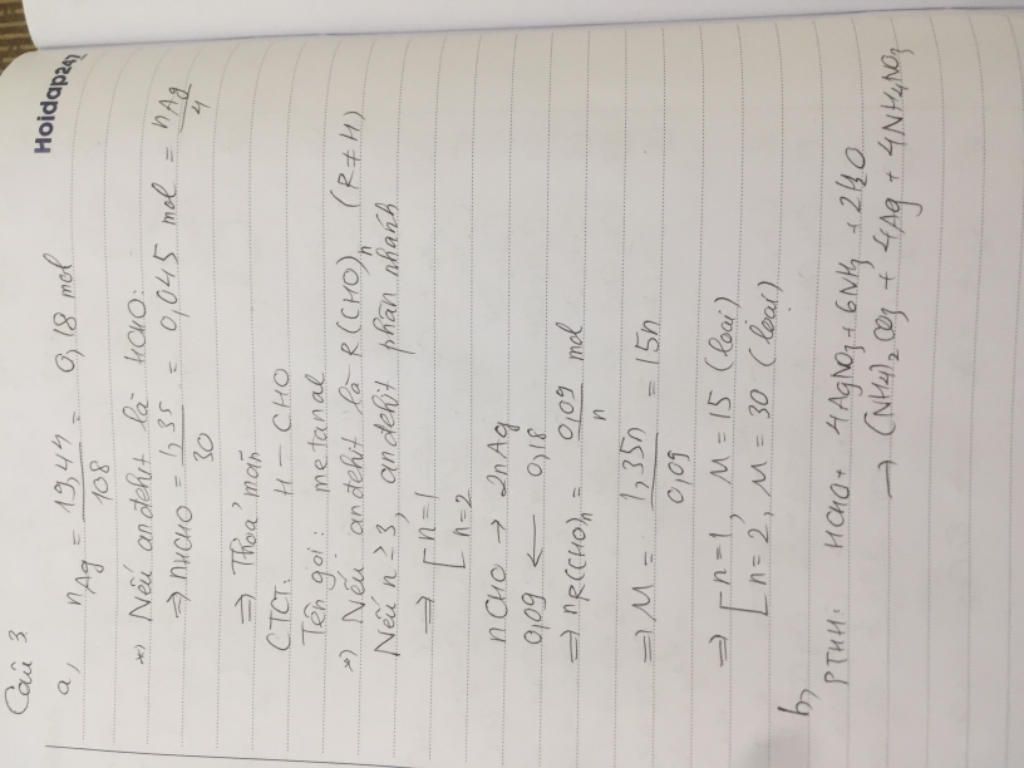 Hoidap247
Câu 3
a, nAg = 19,44/108 = 0,18 mol
*) Nếu anđehit là HCHO:
⇒ nHCHO = 1,35/30 = 0,045 mol = nAg/4
⇒ Thoả mãn
CTCT: H - CHO
Tên gọi: metanal
*) Nếu anđehit là R(CHO)n (R ≠ H)
Nếu n ≥ 3, anđehit phân nhánh
⇒ [n=1
[n=2
nCHO → 2nAg
0,09 ← 0,18
⇒ nR(CHO)n = 0,09/n mol
⇒ M = 1,35n/0,09 = 15n
⇒ [n=1, M=15 (loại)
[n=2, M=30 (loại)
b,
PTHH: HCHO + 4AgNO3 + 6NH3 + 2H2O
→ (NH4)2CO3 + 4Ag + 4NH4NO3